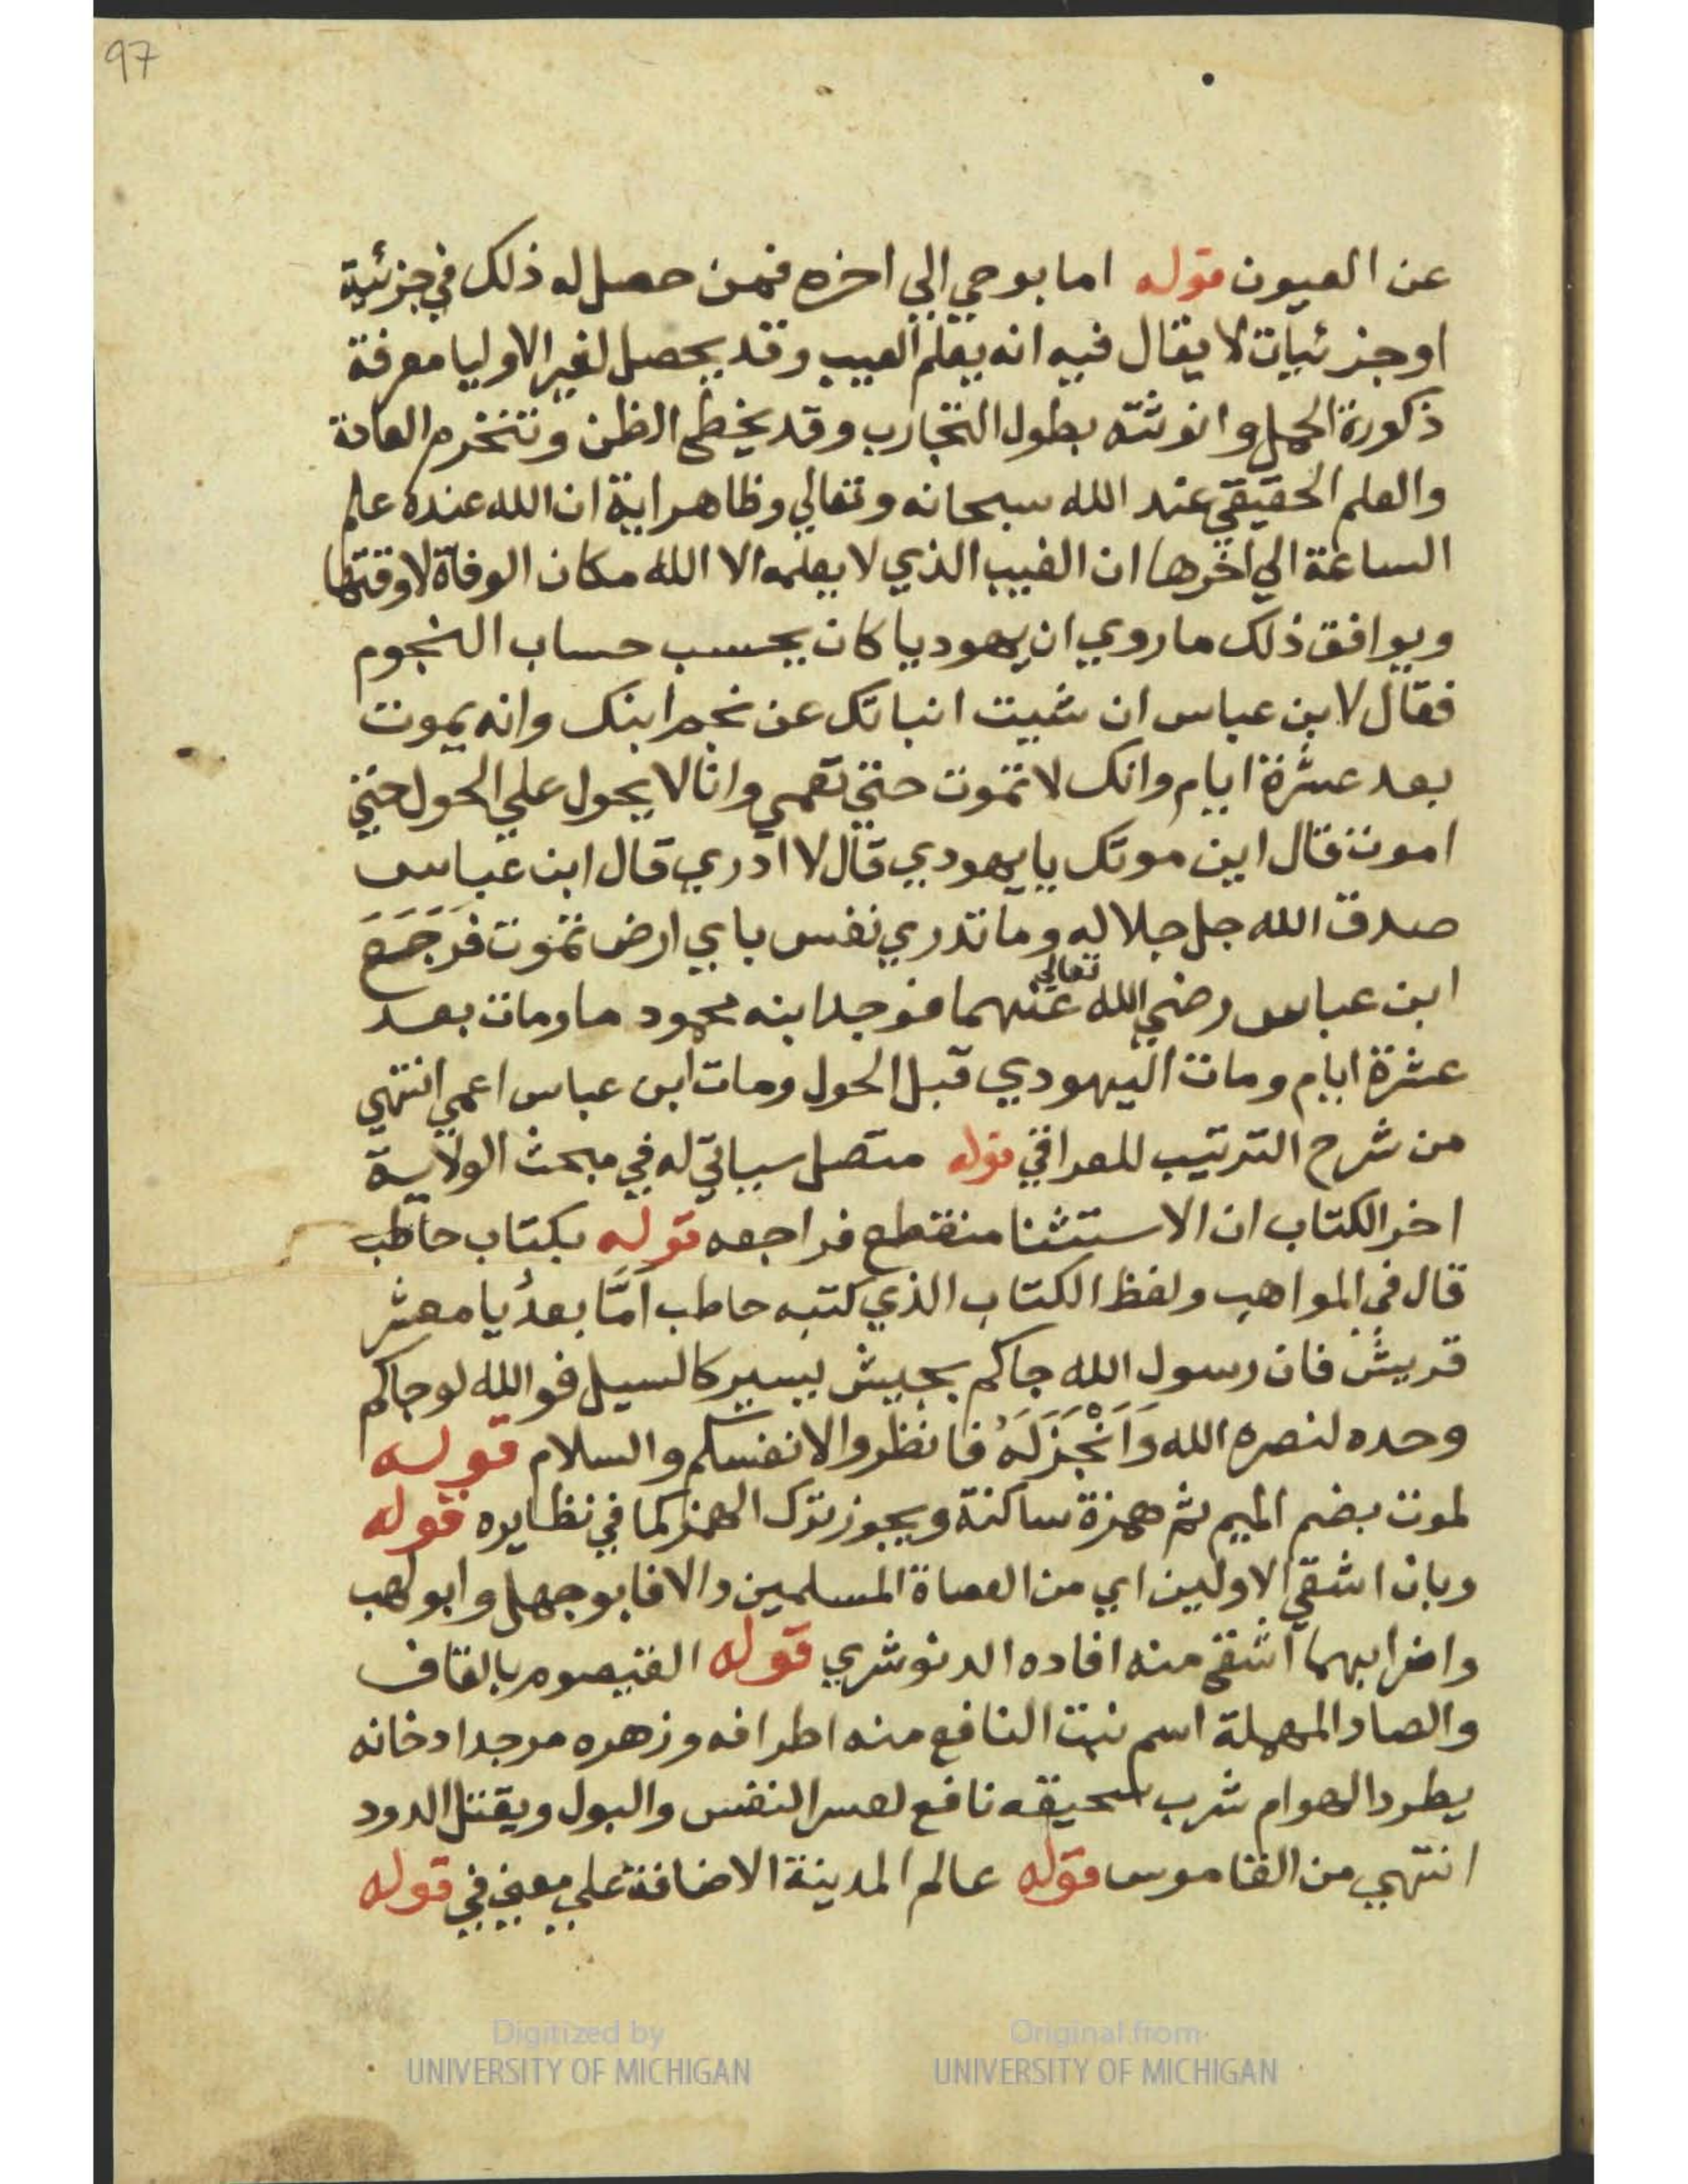 97
عن العيون قوله اما بوحي الي اخره فمن حصل له ذلك في جزئية
او جزئيات لا يقال فيه انه يعلم الغيب وقد يحصل لغير الاوليا معرفة
ذكورة الحمل وانوثته بطول التجارب وقد يخطي الظن وتنخرم العادة
والعلم الحقيقي عند الله سبحانه وتعالي وظاهر اية ان الله عنده علم
الساعة الي اخرها ان الغيب الذي لا يعلمه الا الله مكان الوفاة لا وقتها
ويوافق ذلك ما روي ان يهوديا كان يحسب حساب النجوم
فقال لابن عباس ان شيت انباتك عن نجم ابنك وانه يموت
بعد عشرة ايام وانك لا تموت حتي تعمي وانا لا يحول علي الحول حتي
اموت قال اين موتك يا يهودي قال لا ادري قال ابن عباس
صدق الله جل جلاله وما تدري نفس باي ارض تموت فَرَجَعَ
ابن عباس رضي الله تعالي عنهما فوجد ابنه محموما ومات بعد
عشرة ايام ومات اليهودي قبل الحول ومات ابن عباس اعمي انتهي
من شرح الترتيب للعراقي قوله متصل سياتي له في مبحث الولاية
اخر الكتاب ان الاستثنا منقطع فراجعه قوله بكتاب حاطب
قال في المواهب ولفظ الكتاب الذي كتبه حاطب امَّا بعدُ يا معشر
قريش فان رسول الله جاكم بجيش يسير كالسيل فوالله لو جاكم
وحده لنصره الله وَاَنْجَزَلَهُ فانظروا لانفسكم والسلام قوله
لموت بضم الميم ثم همزة ساكنة ويجوز ترك الهمز كما في نظايره قوله
وبان اشقي الاولين اي من العصاة المسلمين والا فابو جهل وابو لهب
واضرابهما اشقي منه افاده الدنوشري قوله القيصوم بالقاف
والصاد المهملة اسم نبت النافع منه اطرافه وزهره مر جدا دخانه
يطرد الهوام شرب سحيقه نافع لعسر النفس والبول ويقتل الدود
انتهي من القاموس قوله عالم المدينة الاضافة علي معني في قوله
Digitized by
UNIVERSITY OF MICHIGAN
Original from
UNIVERSITY OF MICHIGAN